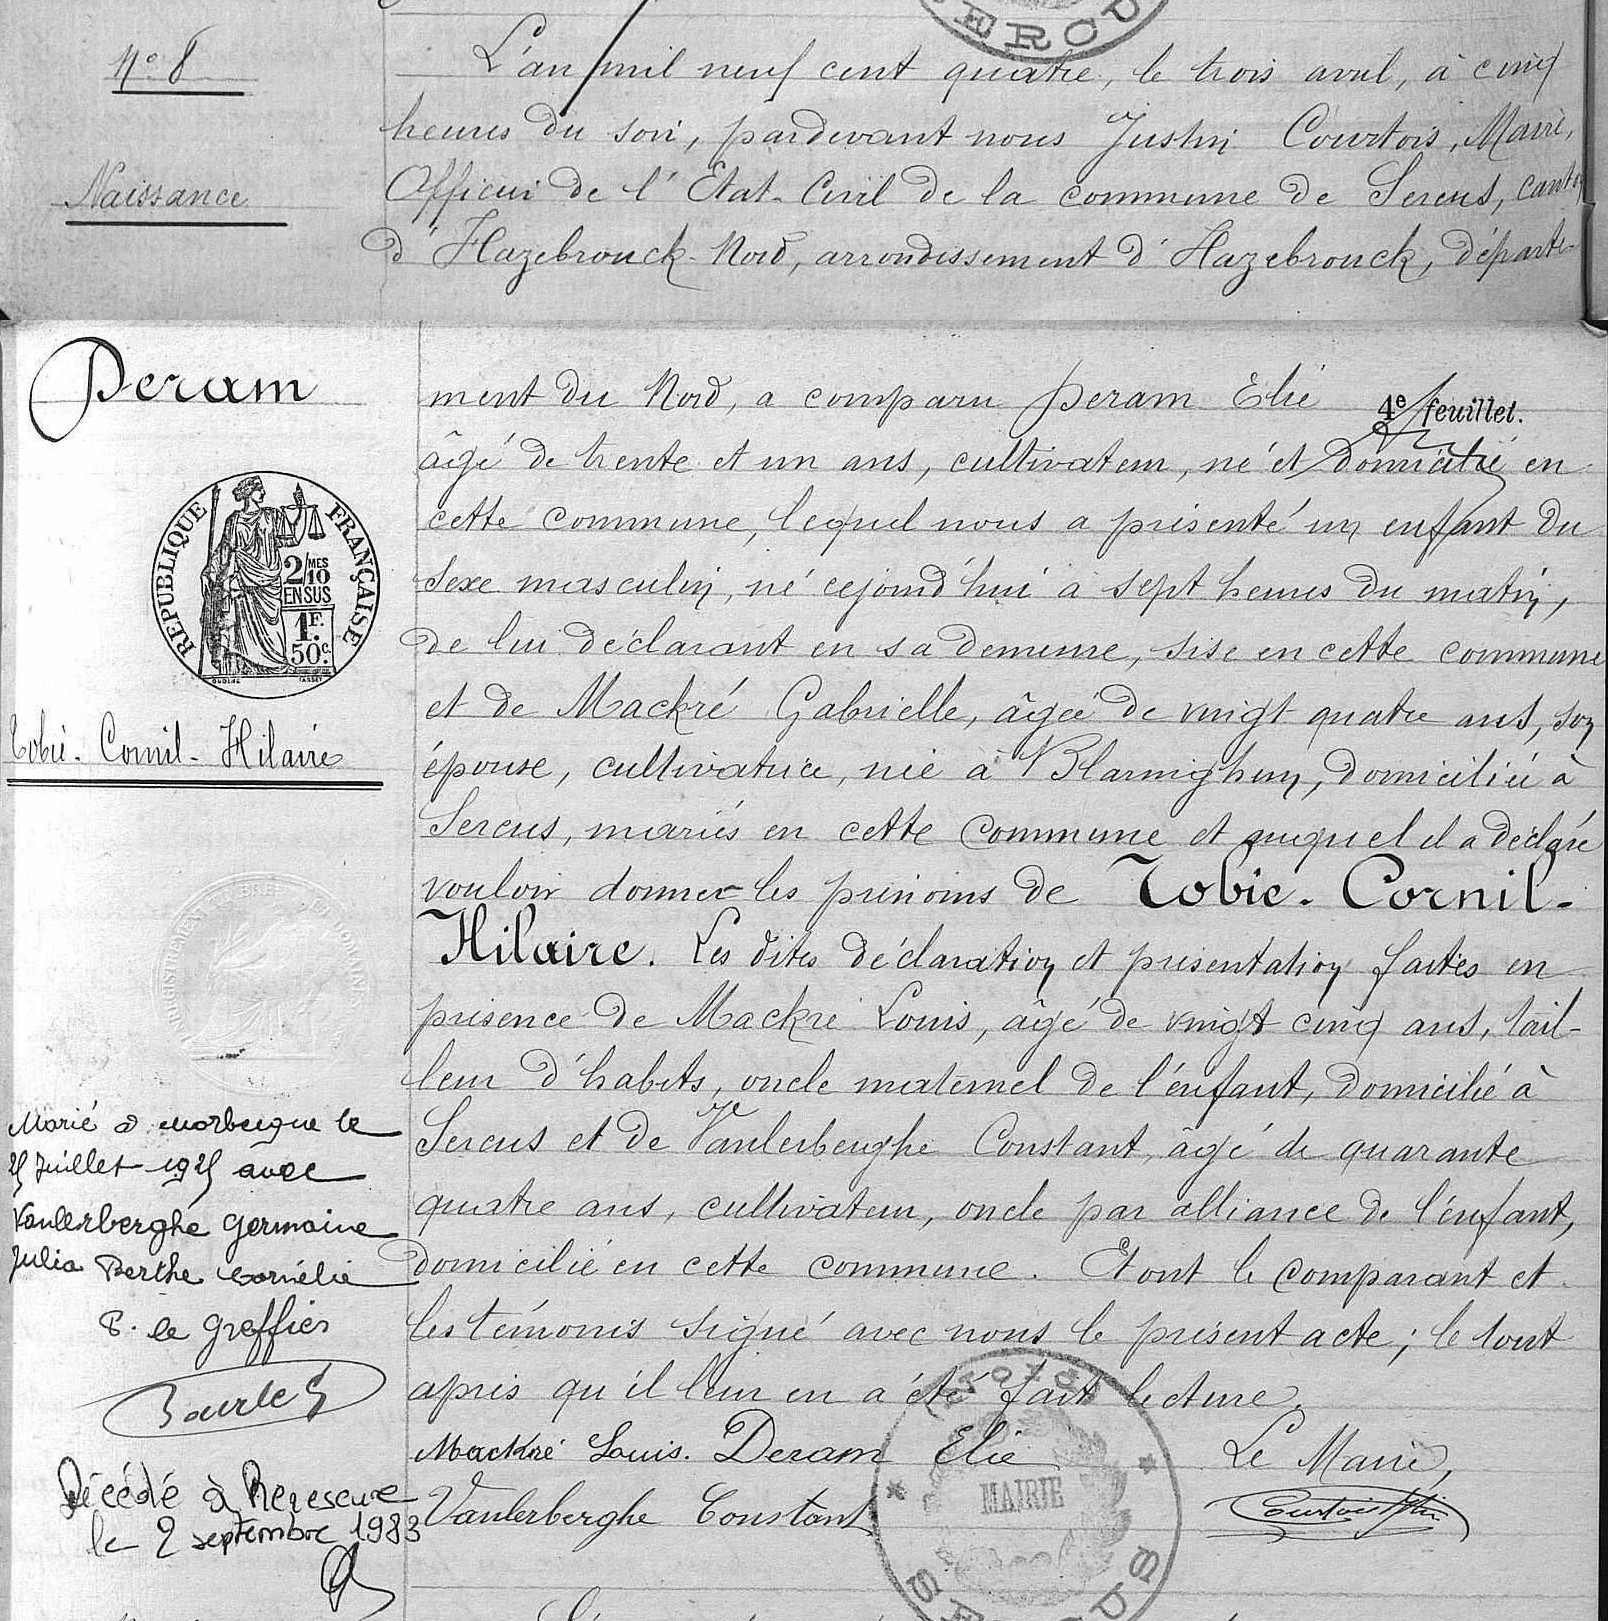 SERCP
N° 8
Naissance
L'an mil neuf cent quatre, le trois avril, à cinq
heures du soir, pardevant nous Justin Courtois, Maire,
Officier de l'Etat-Civil de la commune de Sercus, canton
d'Hazebrouck-Nord, arrondissement d'Hazebrouck, départe-
Deram
ment du Nord, a comparu Deram Elie
4e feuillet.
âgé de trente et un ans, cultivateur, né et domicilié en
cette commune, lequel nous a présenté un enfant du
sexe masculin, né cejourd'hui à sept heures du matin,
de lui déclarant en sa demeure, sise en cette commune
et de Mackré Gabrielle, âgée de vingt quatre ans, son
épouse, cultivatrice, née à Blaringhem, domiciliée à
Sercus, mariés en cette commune et auquel il a déclaré
vouloir donner les prénoms de Tobie-Cornil-
Hilaire. Les dites déclaration et présentation faites en
présence de Mackré Louis, âgé de vingt cinq ans, tail-
leur d'habits, oncle maternel de l'enfant, domicilié à
Sercus et de Vanlerberghe Constant, âgé de quarante
quatre ans, cultivateur, oncle par alliance de l'enfant,
domicilié en cette commune. Et ont le comparant et
les témoins signé avec nous le présent acte; le tout
après qu'il leur en a été fait lecture.
Mackré Louis. Deram Elie
Le Maire,
Vanlerberghe Constant
Courtois Justin
MAIRIE
REPUBLIQUE FRANÇAISE
2/MES
10
EN SUS
1F.
50c.
Tobie-Cornil-Hilaire
Marié à Morbecque le
25 Juillet 1925 avec
Vanlerberghe Germaine
Julia Berthe Cornélie
P. le Greffier
Décédé à Renescure
le 2 septembre 1983